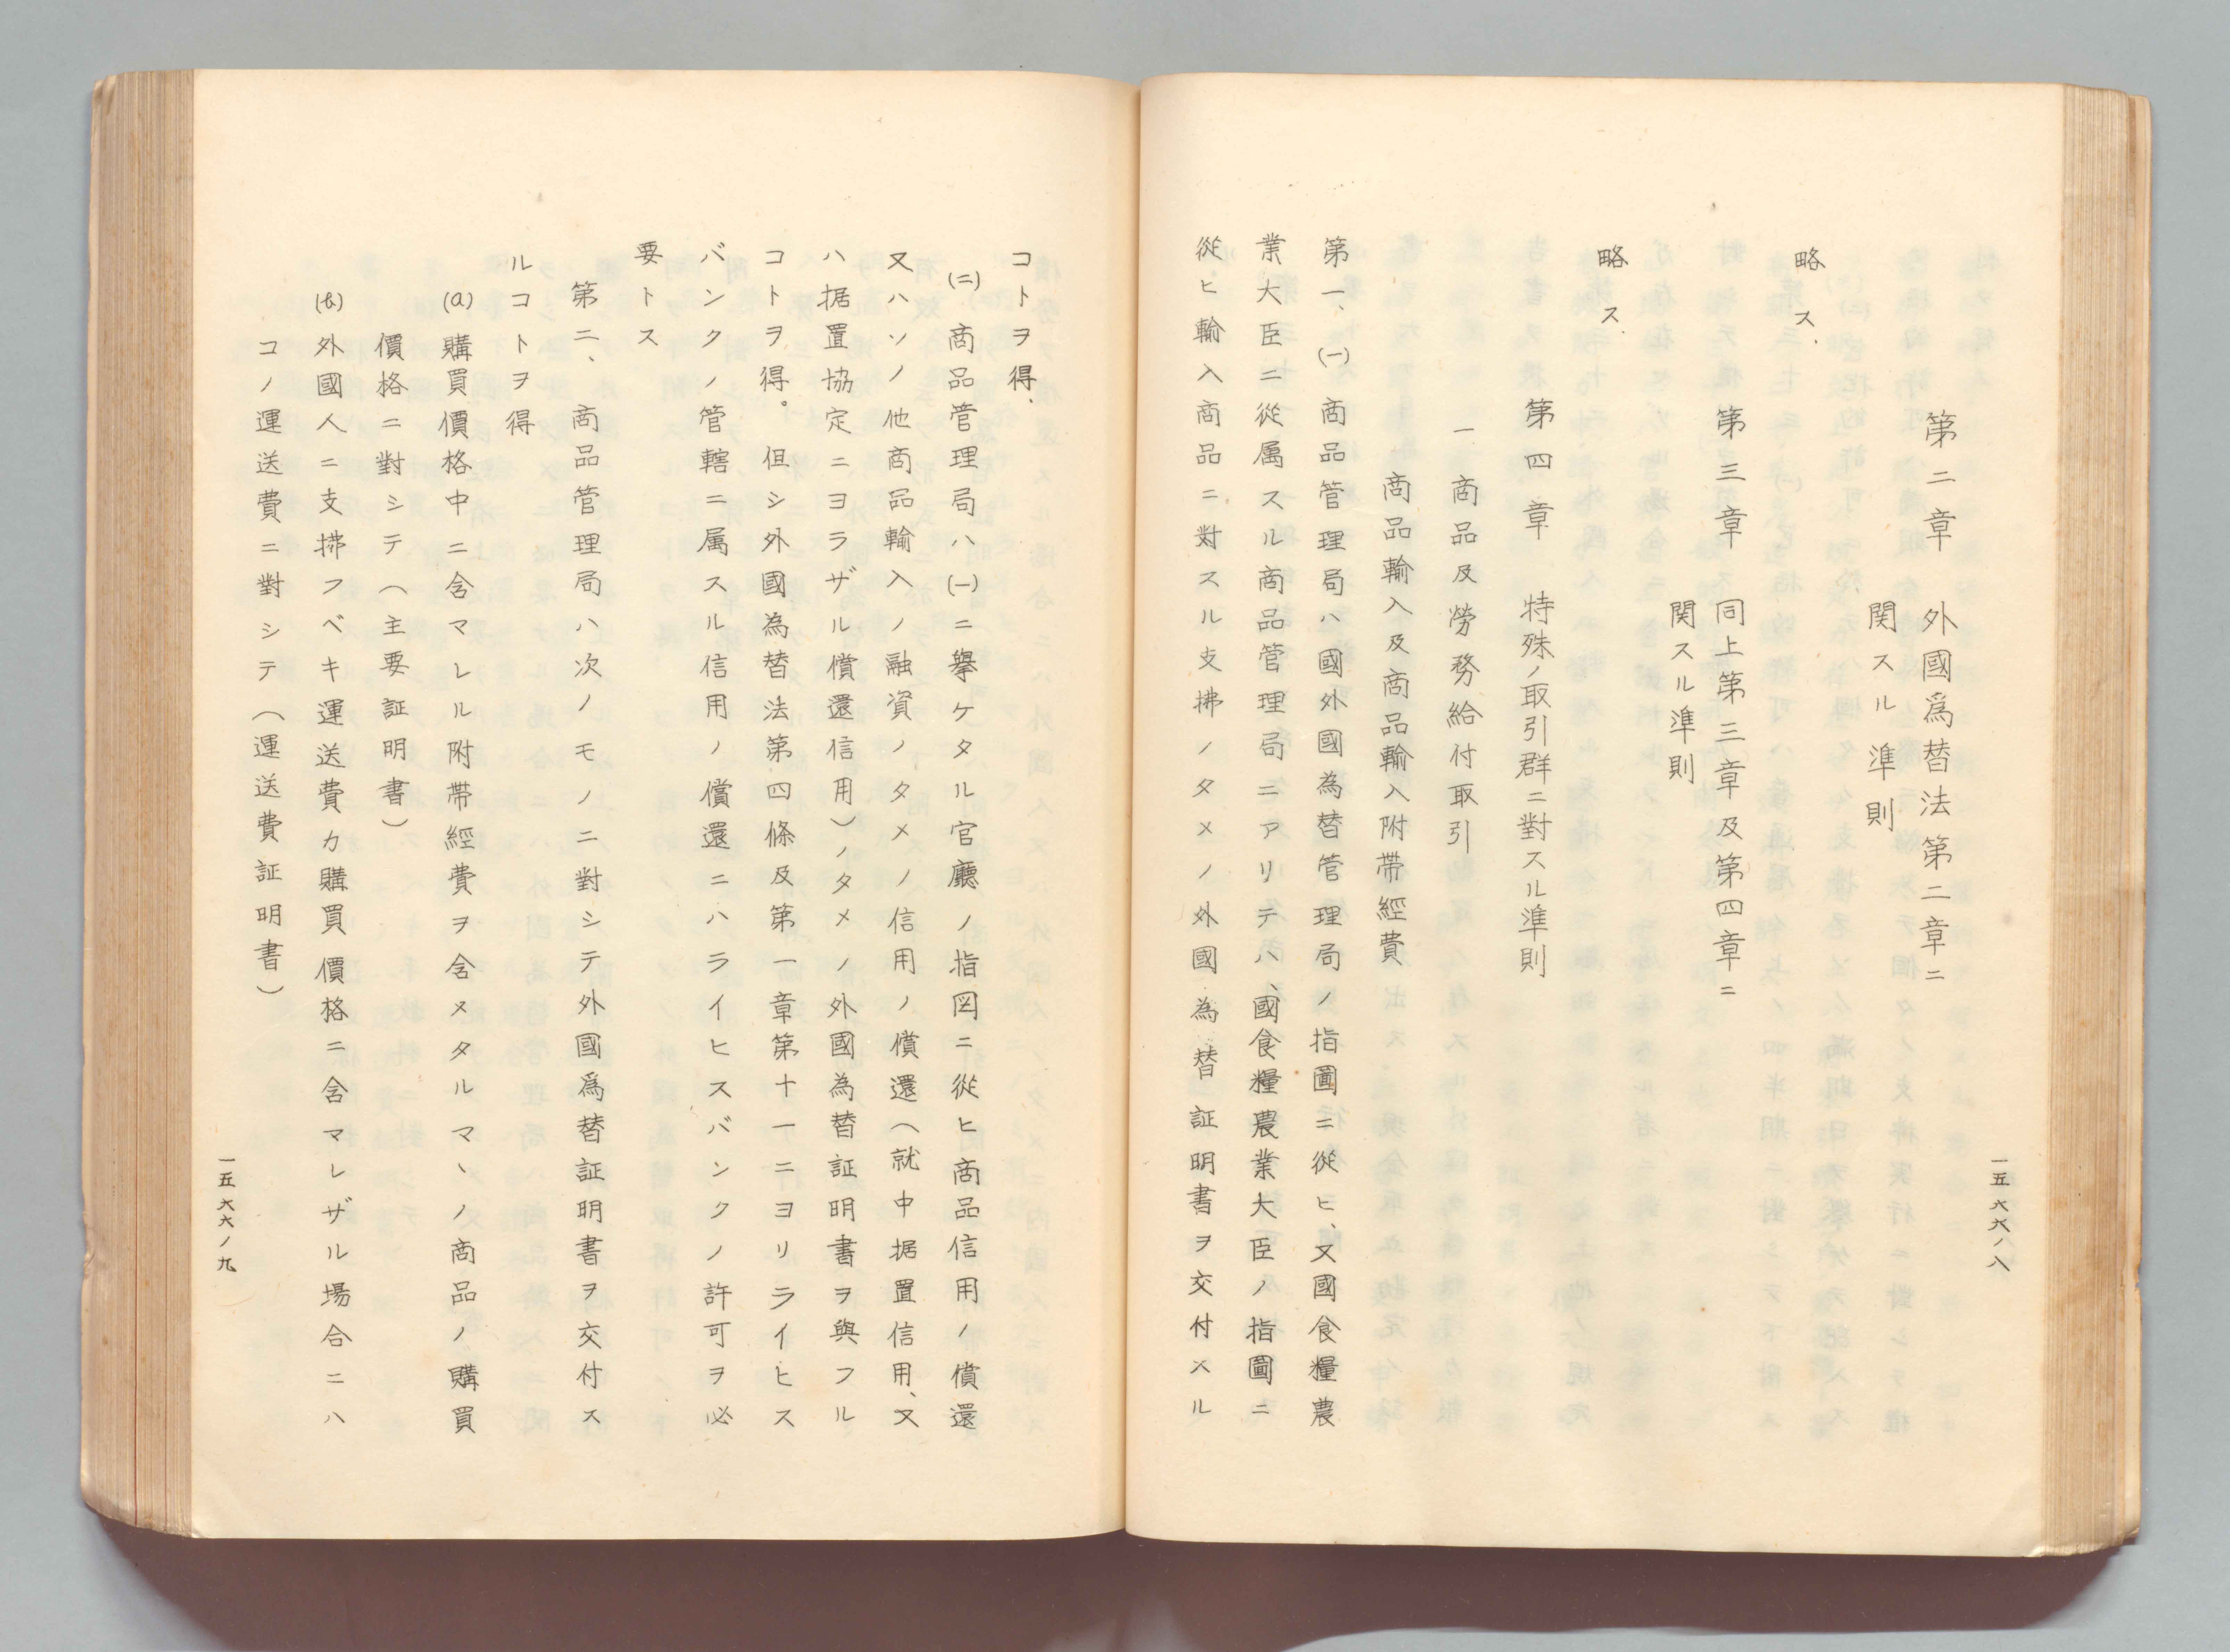 第二章　外國爲替法第二章ニ
関スル準則
略ス.
第三章　同上第三章及第四章ニ
関スル準則
略ス.
第四章　特殊ノ取引群ニ對スル準則
一　商品及勞務給付取引
商品輸入及商品輸入附帶經費
第一、(一)商品管理局ハ國外外國為替管理局ノ指圖ニ從ヒ、又國食糧農
業大臣ニ從属スル商品管理局ニアリテハ、國食糧農業大臣ノ指圖ニ
從ヒ輸入商品ニ對スル支拂ノタメノ外國為替証明書ヲ交付スル
一五六六ノ八
コトヲ得、
(二)商品管理局ハ(一)ニ擧ケタル官廳ノ指図ニ從ヒ商品信用ノ償還
又ハソノ他商品輸入ノ融資ノタメノ信用ノ償還(就中据置信用、又
ハ据置協定ニヨラザル償還信用)ノタメノ外國為替証明書ヲ與フル
コトヲ得。但シ外國為替法第四條及第一章第十一ニヨリライヒス
バンクノ管轄ニ属スル信用ノ償還ニハライヒスバンクノ許可ヲ必
要トス
第二、商品管理局ハ次ノモノニ對シテ外國爲替証明書ヲ交付ス
ルコトヲ得
(a)購買價格中ニ含マレル附帶經費ヲ含メタルマヽノ商品ノ購買
價格ニ對シテ(主要証明書)
(b)外國人ニ支拂フベキ運送費カ購買價格ニ含マレザル場合ニハ
コノ運送費ニ對シテ(運送費証明書)
一五六六ノ九